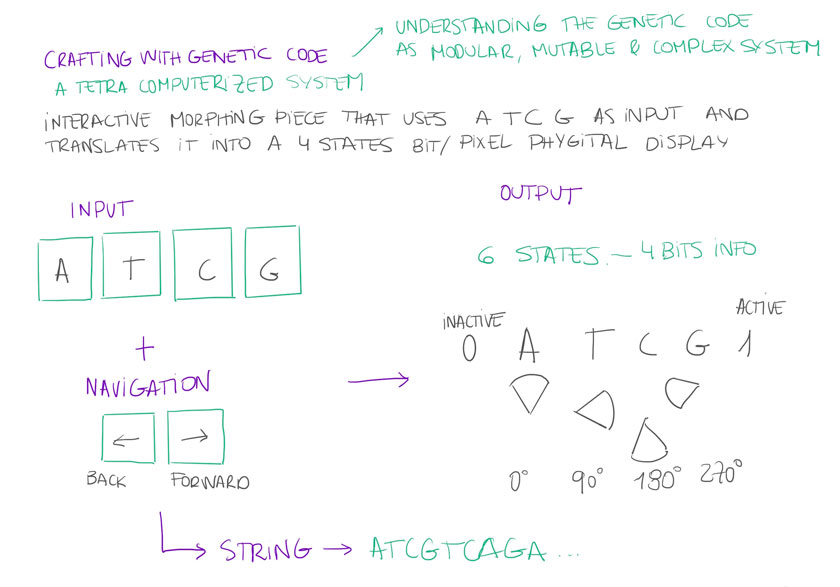 CRAFTING WITH GENETIC CODE
A TETRA COMPUTERIZED SYSTEM
UNDERSTANDING THE GENETIC CODE
AS MODULAR, MUTABLE & COMPLEX SYSTEM
INTERACTIVE MORPHING PIECE THAT USES A T C G AS INPUT AND
TRANSLATES IT INTO A 4 STATES BIT/ PIXEL PHYGITAL DISPLAY
INPUT
A T C G
+
NAVIGATION
← →
BACK FORWARD
OUTPUT
6 STATES - 4 BITS INFO
INACTIVE ACTIVE
0 A T C G 1
0° 90° 180° 270°
STRING → ATCGTCAGA ...